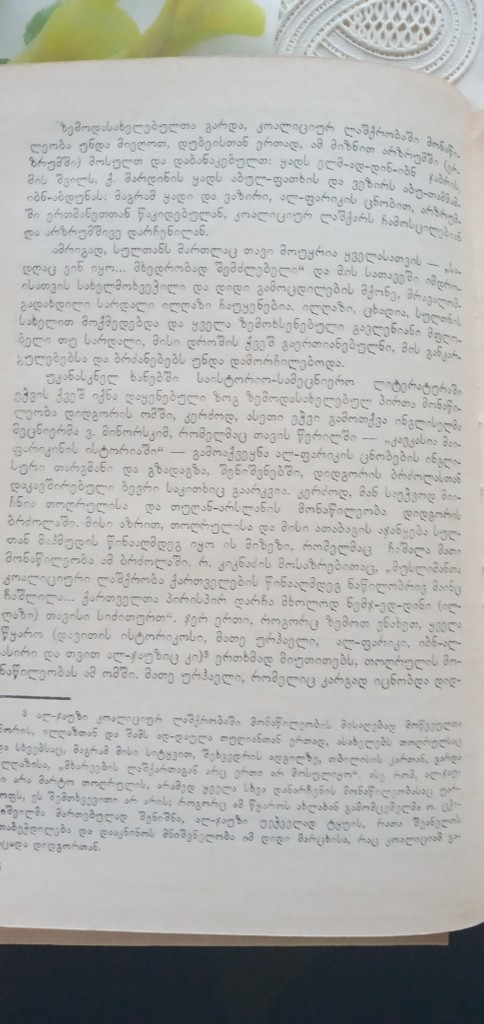 ზემოდასახელებულთა გარდა, კოალიციურ ლაშქრობაში მონაწი-
ლეობა უნდა მიეღოთ, დუბეისთან ერთად, ამ მიზნით არზრუმში (ერ-
ზრუმში) მოსულთ და დაბანაკებულთ: ყადს ელმ-ად-დინ-იბნ ჯაბრის,
მის შვილს, ქ. მარდინის ყადს აბულ-ფათხის და ვეზირს აბუ-თამამ-
იბნ-აბდუნას: მაგრამ ყადი და ვაზირი, ალ-ფარიკის ცნობით, არზრუმ-
ში ერთმანეთთან წაკიდებულან, კოალიციურ ლაშქარს ჩამოსცილებიან
და არზრუმშივე დარჩენილან.
ამრიგად, სულთანს მართლაც თავი მოუყრია ყველასათვის — „სა-
დღაც ვინ იყო... მხედრობად შემძლებელი“ და მის სათავეში იმდრო-
ისათვის სახელმოხვეჭილი და დიდი გამოცდილების მქონე, მრავალომ-
გადახდილი სარდალი ილღაზი ჩაუყენებია. ილღაზი, ცხადია, სულთნის
სახელით მოქმედებდა და ყველა ზემოხსენებული გავლენიანი მფლო-
ბელი თუ სარდალი, მისი დროშის ქვეშ გაერთიანებულნი, მის განკარ-
გულებებსა და ბრძანებებს უნდა დამორჩილებოდა.
უკანასკნელ ხანებში საისტორიო-სამეცნიერო ლიტერატურაში
ეჭვის ქვეშ იქნა დაყენებული ზოგ ზემოდასახელებულ პირთა მონაწი-
ლეობა დიდგორის ომში, კერძოდ, ასეთი ეჭვი გამოთქვა ინგლისელმა
მეცნიერმა ვ. მინორსკიმ, რომელმაც თავის წერილში — „კავკასია მაი-
ფარიკინის ისტორიაში“ — გამოაქვეყნა ალ-ფარიკის ცნობების ინგლი-
სური თარგმანი და გზადაგზა, შენიშვნებში, დიდგორის ბრძოლასთან
დაკავშირებული ბევრი საკითხიც გაარკვია. კერძოდ, მან საეჭვოდ მიი-
ჩნია თოღრულისა და თუღან-არსლანის მონაწილეობა დიდგორის
ბრძოლაში. მისი აზრით, თოღრულისა და მისი ათაბაგის აჯანყება სულ-
თან მაჰმუდის წინააღმდეგ იყო ის მიზეზი, რომელმაც ჩაშალა მათი
მონაწილეობა ამ ბრძოლაში. რ. კიკნაძის მოსაზრებითაც, „მუსლიმანთა
კოალიციური ლაშქრობა ქართველების წინააღმდეგ ნაწილობრივ მაინც
ჩაშლილა... ქართველთა პირისპირ დარჩა მხოლოდ ნემჯ-ედ-დინი (ილ-
ღაზი) თავისი სიძითურთ“. ჯერ ერთი, როგორც ზემოთ ვნახეთ, ყველა
წყარო (დავითის ისტორიკოსი, მათე ურჰაელი, ალ-ფარიკი, იბნ-ალ-
ასირი და თვით ალ-ჯაუზიც კი)³ ერთხმად მიუთითებს, თოღრულის მო-
ნაწილეობას ამ ომში. მათე ურჰაელი, რომელიც კარგად იცნობდა დიდ-
³ ალ-ჯაუზი კოალიციურ ლაშქრობაში მონაწილეობის მისაღებად მოწვეულთა
შორის, ილღაზთან და შამს ად-დაულა თუღანთან ერთად, ასახელებს თოღრულსაც
და სხვებსაც, მაგრამ მისი სიტყვით, შეხვედრის ადგილზე, თბილისის კართან, გარდა
ილღაზისა, „მხარეების ლაშქართაგან არც ერთი არ მოსულიყო“. ასე რომ, ალ-ჯაუ-
ზი არა მარტო თოღრულის, არამედ ყველა სხვა დანარჩენის მონაწილეობასაც უარ-
ყოფს, ეს შემთხვევითი არ არის; როგორც ამ წყაროს ახლახან გამომცემელმა ო.
მართებულად შენიშნა, ალ-ჯაუზი უეჭველად ტყუის, რათა შეანელოს
შთაბეჭდილება და დააკნინოს მნიშვნელობა იმ დიდი მარცხისა, რაც კოალიციამ გა-
ნიცადა დიდგორთან.